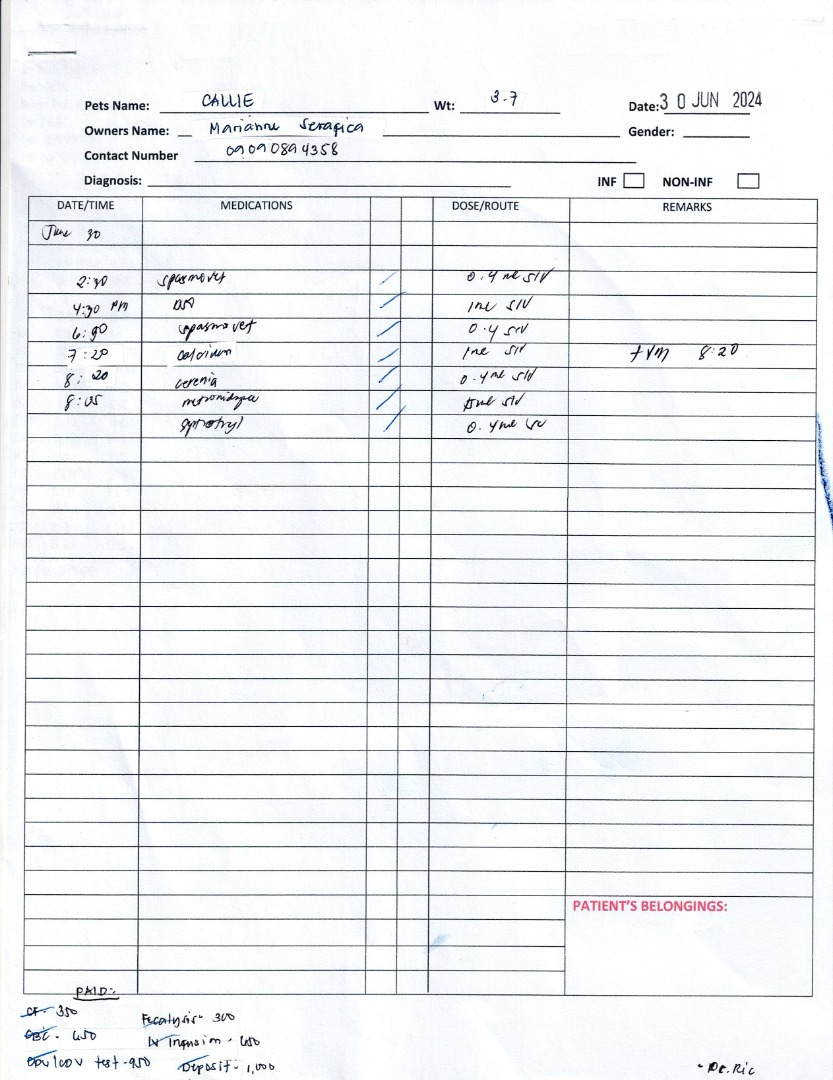 Pets Name: CALLIE Wt: 3.7 Date: 30 JUN 2024
Owners Name: Marianne Serafica Gender:
Contact Number 09090894358
Diagnosis: INF NON-INF
DATE/TIME MEDICATIONS DOSE/ROUTE REMARKS
June 30
2:30 spasmovet / 0.4 ml SIV
4:30 PM / 1ml SIV
6:30 spasmovet / 0.4 SIV
7:20 calcium / 1ml SIV 8:20
8:20 cerenia / 0.4ml SIV
8:05 / SIV
/ 0.4ml
PATIENT'S BELONGINGS:
PAID:
CF - 350 Fecalysis - 300
CBC - 650 IV Infusion - 650
CDV/CDV test - 950 Deposit - 1,000
- Dr. Ric